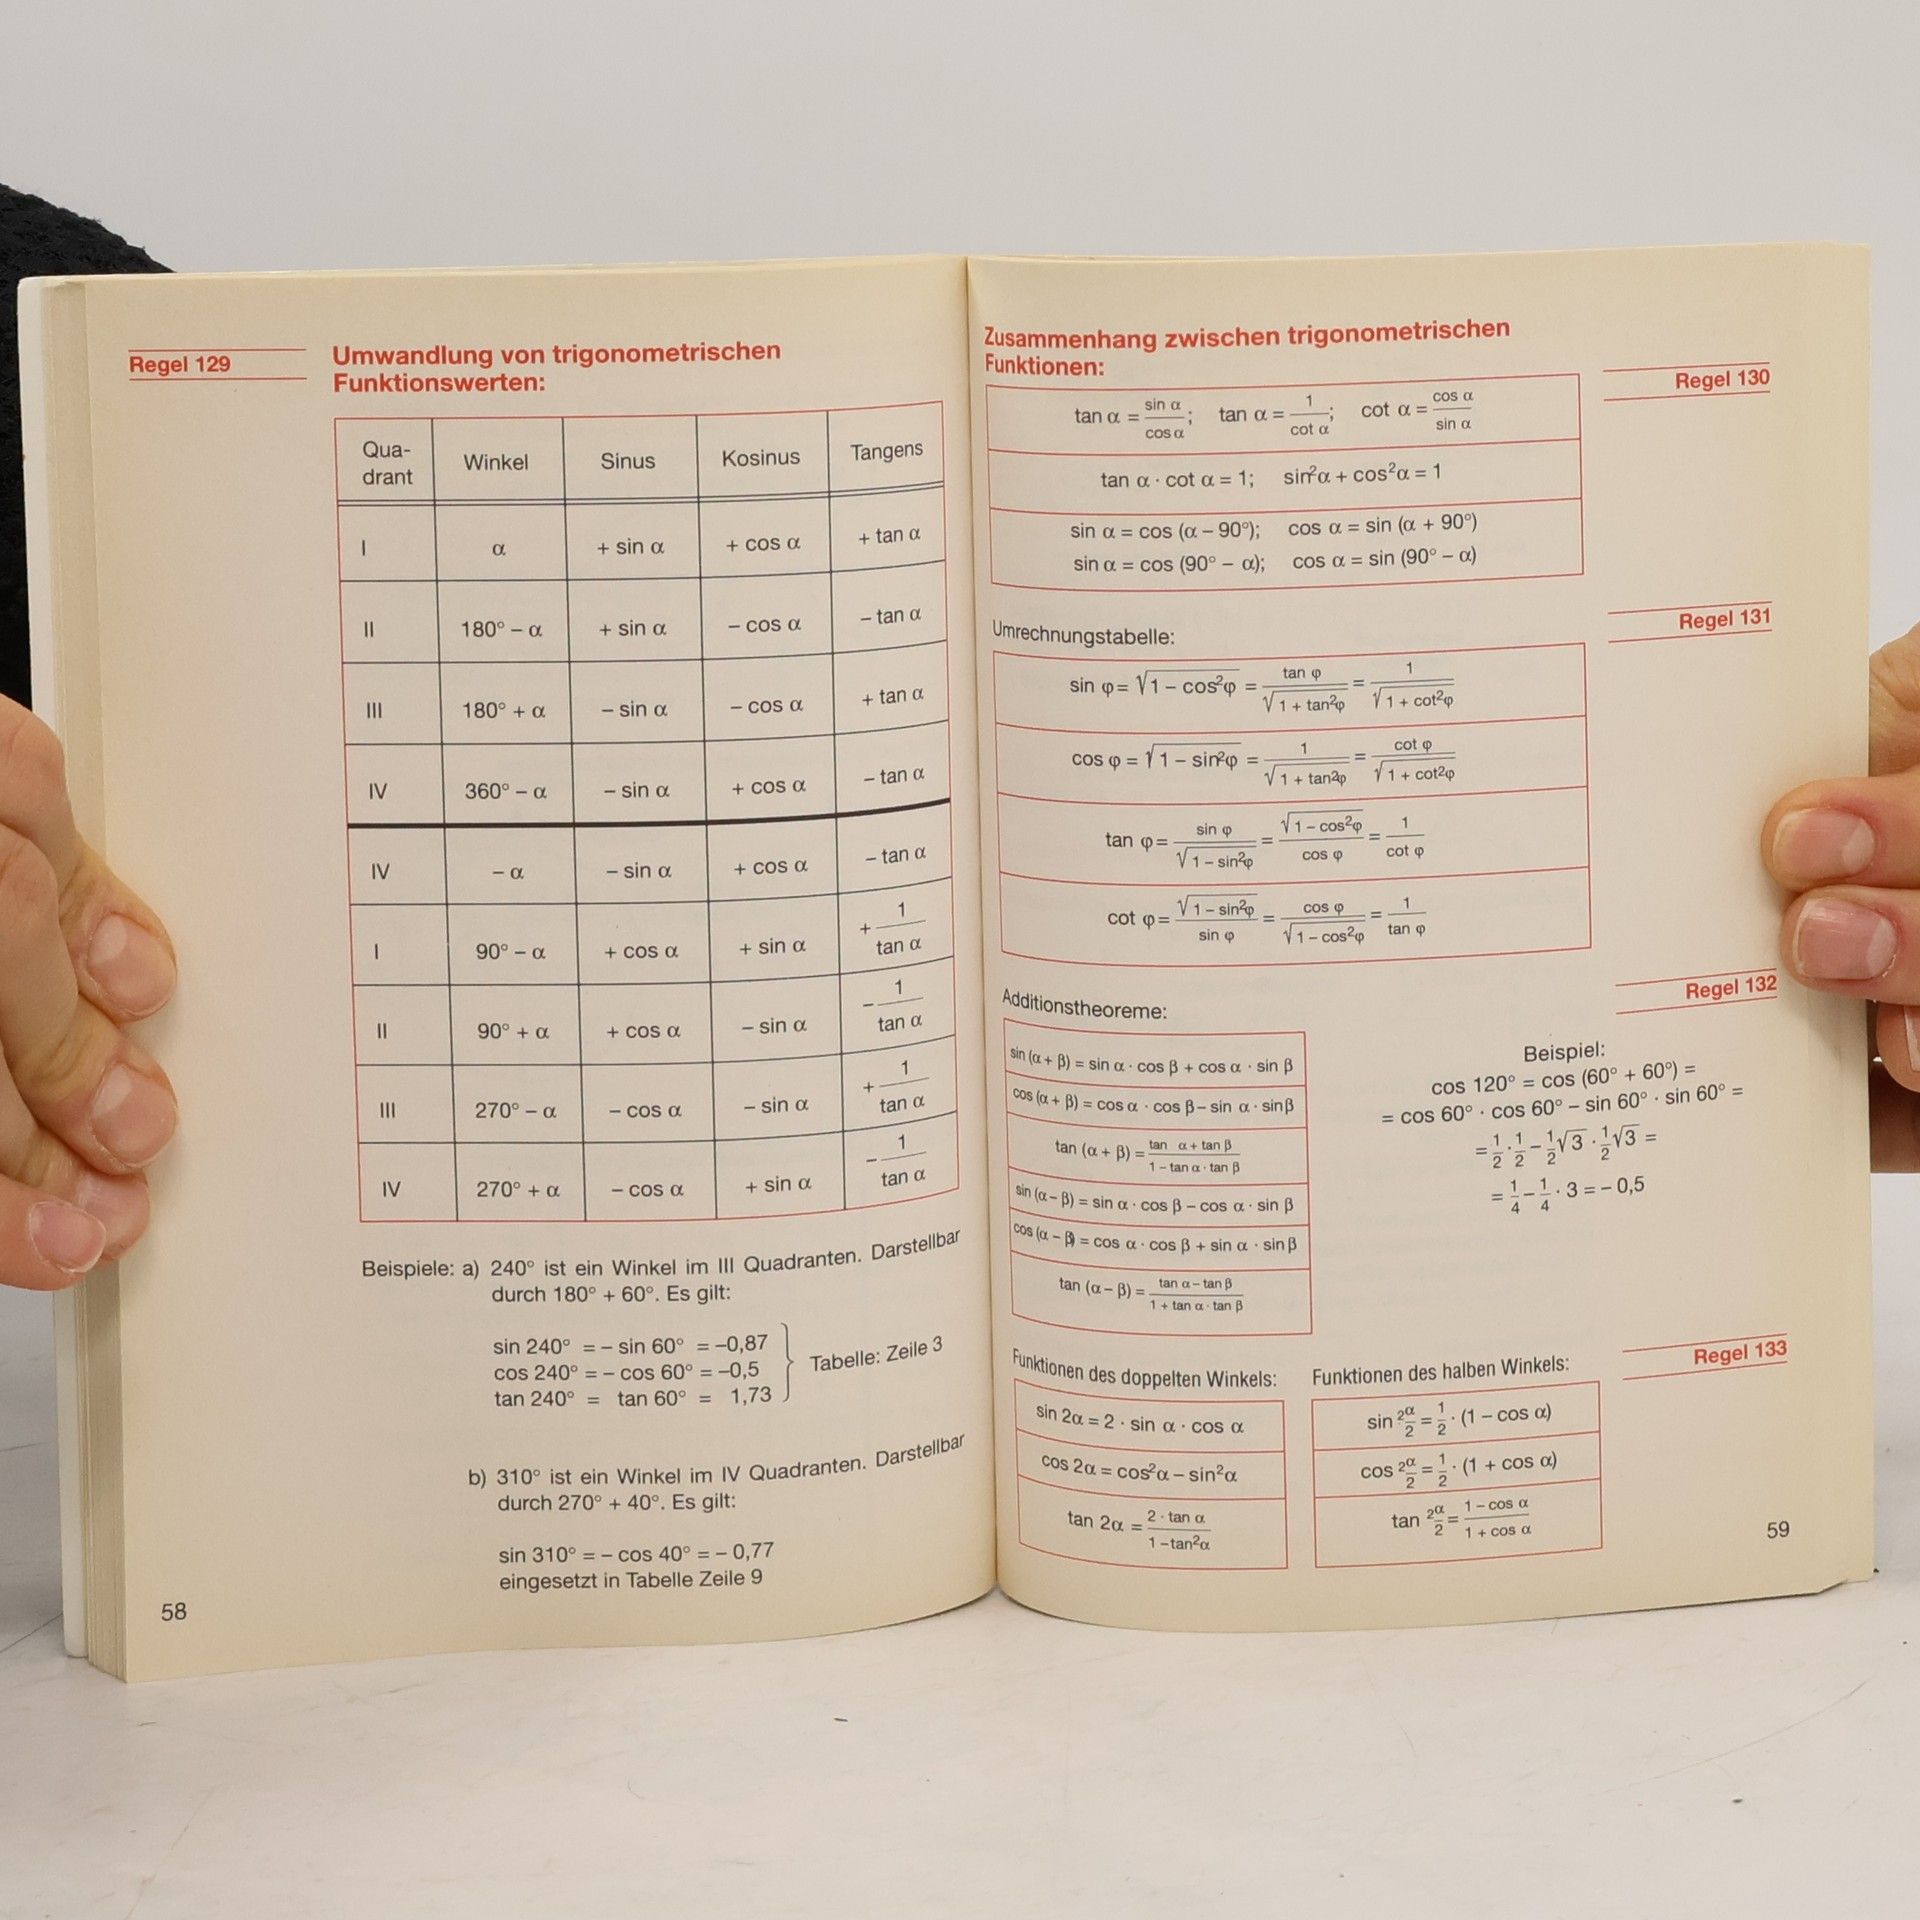 Regel 129
Umwandlung von trigonometrischen
Funktionswerten:
Qua-
drant
Winkel Sinus Kosinus Tangens
I α + sin α + cos α + tan α
II 180° – α + sin α – cos α – tan α
III 180° + α – sin α – cos α + tan α
IV 360° – α – sin α + cos α – tan α
IV – α – sin α + cos α – tan α
I 90° – α + cos α + sin α + 1/tan α
II 90° + α + cos α – sin α – 1/tan α
III 270° – α – cos α – sin α + 1/tan α
IV 270° + α – cos α + sin α – 1/tan α
Beispiele: a) 240° ist ein Winkel im III Quadranten. Darstellbar
durch 180° + 60°. Es gilt:
sin 240° = – sin 60° = –0,87
cos 240° = – cos 60° = –0,5
tan 240° = tan 60° = 1,73
Tabelle: Zeile 3
b) 310° ist ein Winkel im IV Quadranten. Darstellbar
durch 270° + 40°. Es gilt:
sin 310° = – cos 40° = – 0,77
eingesetzt in Tabelle Zeile 9
58
Zusammenhang zwischen trigonometrischen
Funktionen:
Regel 130
tan α = sin α/cos α; tan α = 1/cot α; cot α = cos α/sin α
tan α · cot α = 1; sin²α + cos²α = 1
sin α = cos (α – 90°); cos α = sin (α + 90°)
sin α = cos (90° – α); cos α = sin (90° – α)
Regel 131
Umrechnungstabelle:
sin φ = √(1 – cos²φ) = tan φ/√(1 + tan²φ) = 1/√(1 + cot²φ)
cos φ = √(1 – sin²φ) = 1/√(1 + tan²φ) = cot φ/√(1 + cot²φ)
tan φ = sin φ/√(1 – sin²φ) = √(1 – cos²φ)/cos φ = 1/cot φ
cot φ = √(1 – sin²φ)/sin φ = cos φ/√(1 – cos²φ) = 1/tan φ
Regel 132
Additionstheoreme:
sin (α + β) = sin α · cos β + cos α · sin β
cos (α + β) = cos α · cos β – sin α · sin β
tan (α + β) = (tan α + tan β)/(1 – tan α · tan β)
sin (α – β) = sin α · cos β – cos α · sin β
cos (α – β) = cos α · cos β + sin α · sin β
tan (α – β) = (tan α – tan β)/(1 + tan α · tan β)
Beispiel:
cos 120° = cos (60° + 60°) =
= cos 60° · cos 60° – sin 60° · sin 60° =
= 1/2 · 1/2 – 1/2 √3 · 1/2 √3 =
= 1/4 – 1/4 · 3 = – 0,5
Regel 133
Funktionen des doppelten Winkels:
sin 2α = 2 · sin α · cos α
cos 2α = cos²α – sin²α
tan 2α = 2 · tan α/(1 – tan²α)
Funktionen des halben Winkels:
sin² α/2 = 1/2 · (1 – cos α)
cos² α/2 = 1/2 · (1 + cos α)
tan² α/2 = (1 – cos α)/(1 + cos α)
59